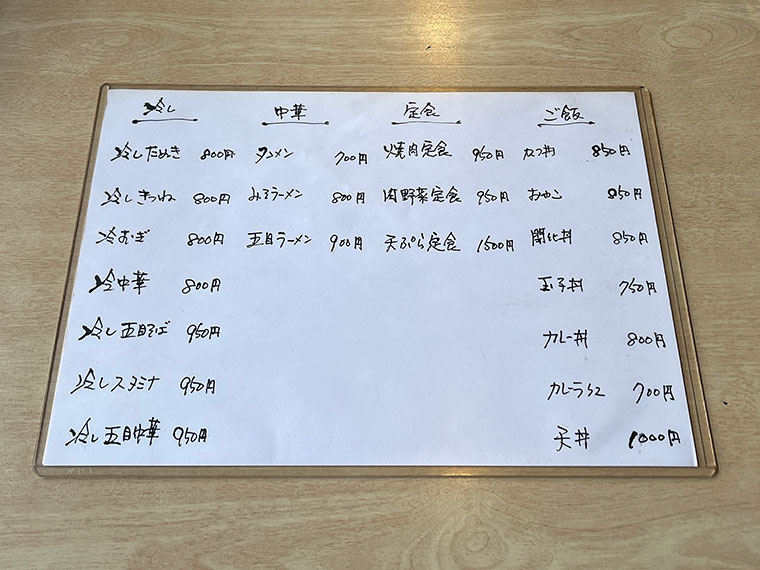 冷し
冷したぬき 800円
冷しきつね 800円
冷むぎ 800円
冷中華 800円
冷し五目そば 950円
冷しスタミナ 950円
冷し五目中華 950円
中華
タンメン 700円
みそラーメン 800円
五目ラーメン 900円
定食
焼肉定食 950円
肉野菜定食 950円
天ぷら定食 1500円
ご飯
カツ丼 850円
おやこ 850円
開化丼 850円
玉子丼 750円
カレー丼 800円
カレーライス 700円
天丼 1000円